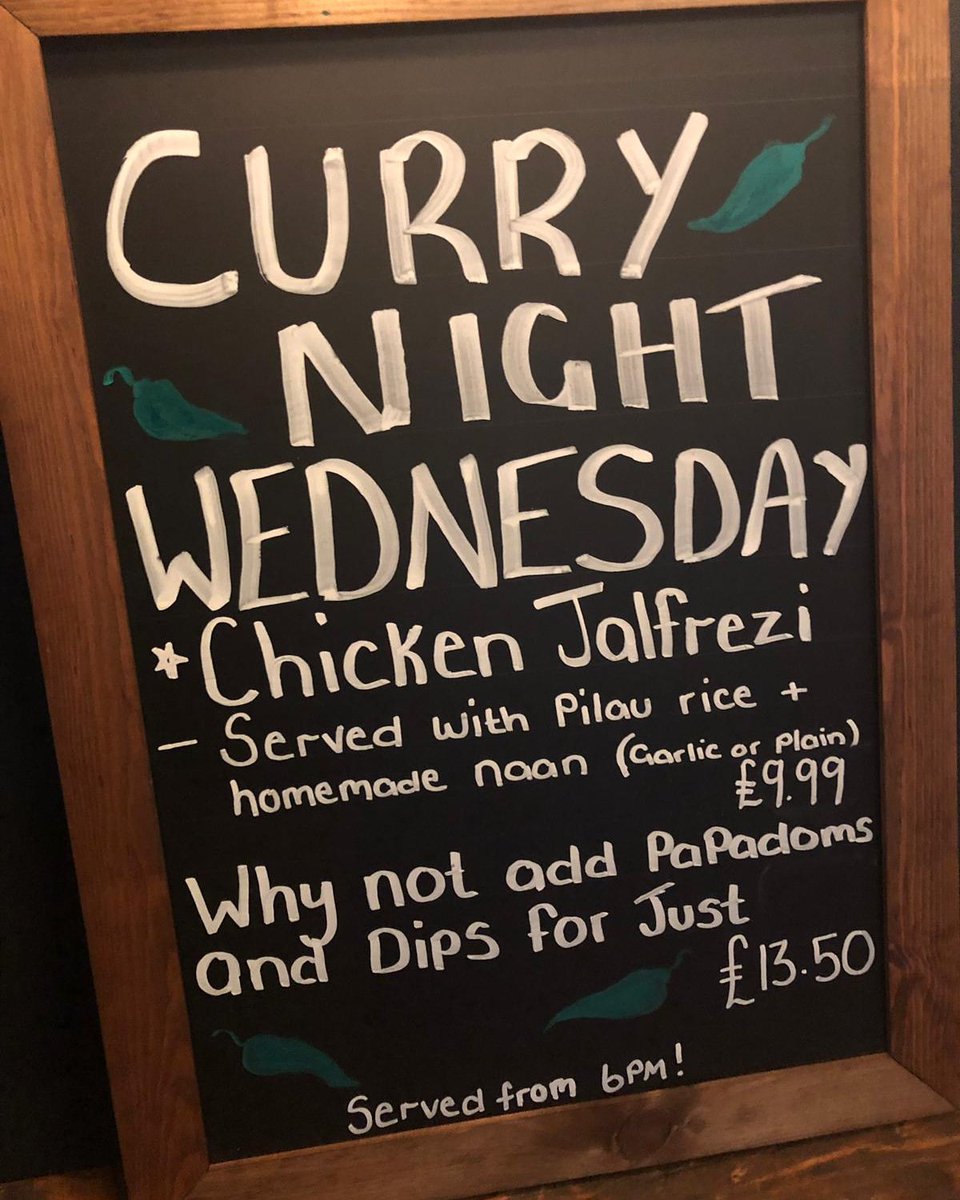 CURRY
NIGHT
WEDNESDAY
* Chicken Jalfrezi
- Served with Pilau rice +
homemade naan (Garlic or Plain)
£9.99
Why not add PaPadoms
and Dips for Just
£13.50
Served from 6PM!